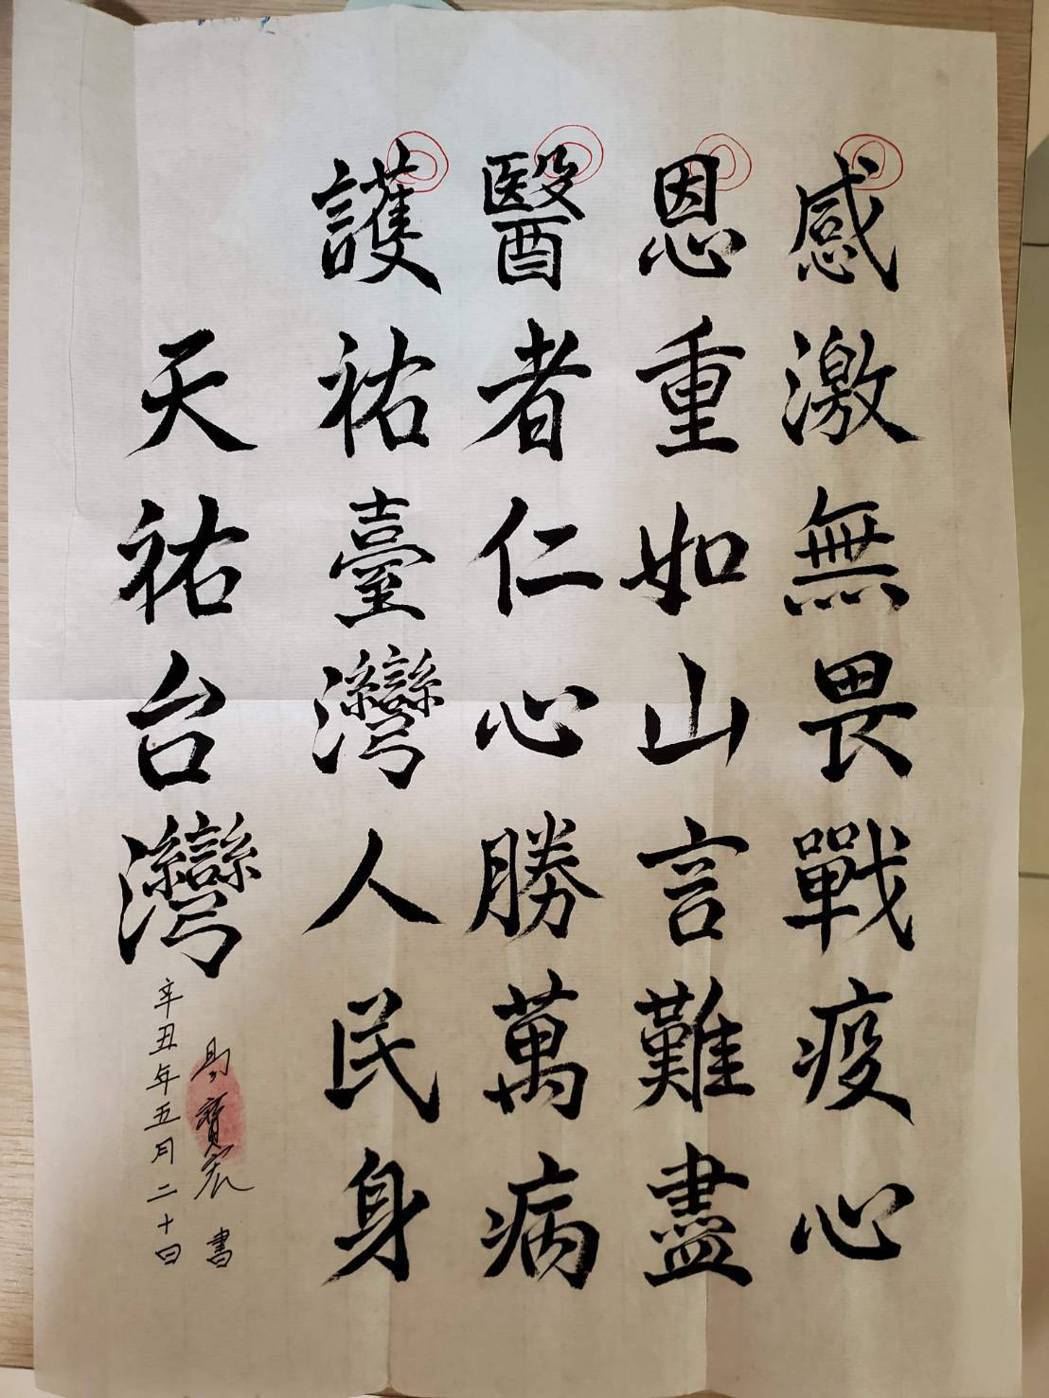 感激無畏戰疫心
恩重如山言難盡
醫者仁心勝萬病
護祐臺灣人民身
天祐台灣
寶宏 書
辛丑年五月二十日